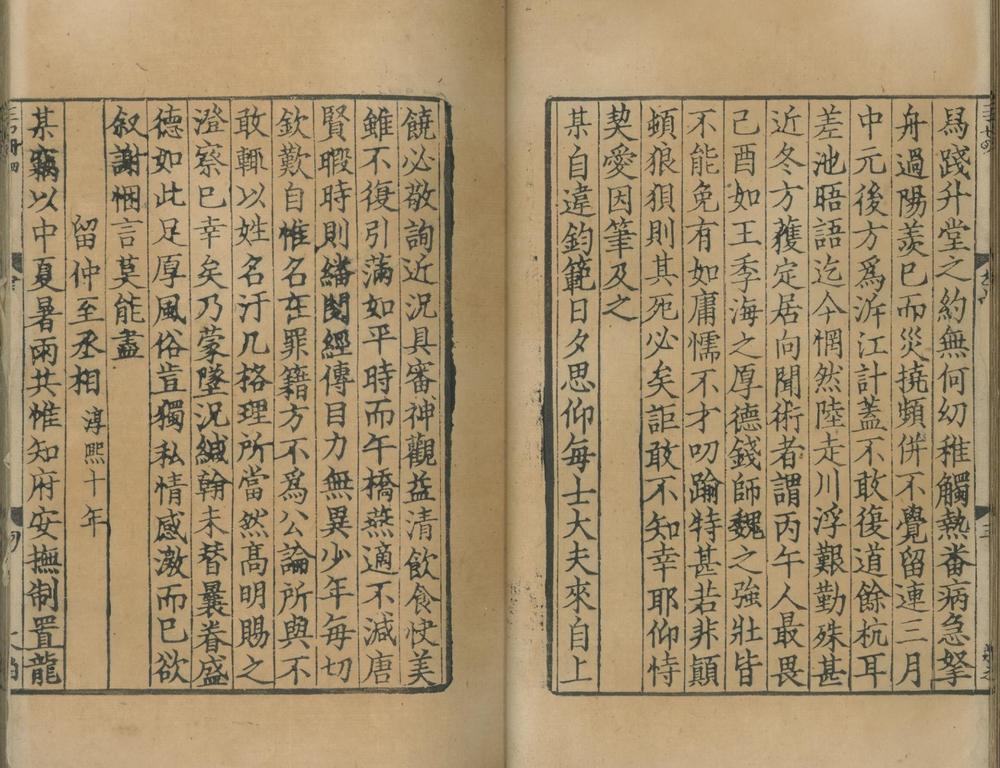 爲踐升堂之約無何幼稚觸熱畨病急拏
舟過陽羨巳而災撓頻併不覺留連三月
中元後方爲浙江計蓋不敢復道餘杭耳
差池晤語迄今惘然陸走川浮艱勤殊甚
近冬方獲定居向聞術者謂丙午人最畏
己酉如王季海之厚德錢師魏之強壯皆
不能免有如庸懦不才叨踰特甚若非顛
頓狼狽則其死必矣詎敢不知幸耶仰恃
契愛因筆及之
某自違鈞範日夕思仰每士大夫來自上
饒必敬詢近況具審神觀益清飲食快美
雖不復引滿如平時而午橋燕適不減唐
賢暇時則繙閱經傳目力無異少年每切
欽歎自惟名在罪籍方不爲公論所與不
敢輒以姓名汙几格理所當然髙明賜之
澄察巳幸矣乃蒙墜況緘翰未替曩眷盛
德如此足厚風俗豈獨私情感激而已欲
叙謝悃言莫能盡
留仲至丞相 淳熙十年
某竊以中夏暑雨共惟知府安撫制置龍